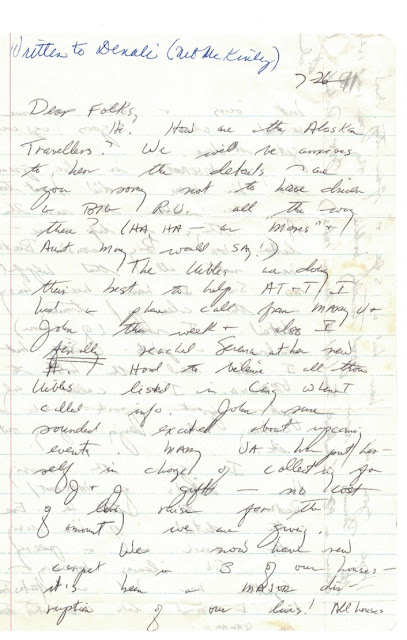 Written to Denali (Mt McKinley)
7-26-91
Dear Folks,
Hi. How are the Alaska
Travellers? We will be anxious
to hear the details - are
you sorry not to have driven
a BIG R.V. all the way
there? (HA HA - as Moms +
Aunt Mary would say!)
The Uibles are doing
their best to help AT+T! I
had a phone call from Mary U +
John this week + also I
finally reached Serena at her new
Hard to believe all those
Uibles listed in when I
called info. John sure
sounded excited about upcoming
events. Mary VA has put her-
self in charge of collecting for
J + J gift - no
of being for the
amount we are giving.
We now have new
carpet in 3 of our houses -
it's been a MAJOR dis-
ruption of our lives! All houses